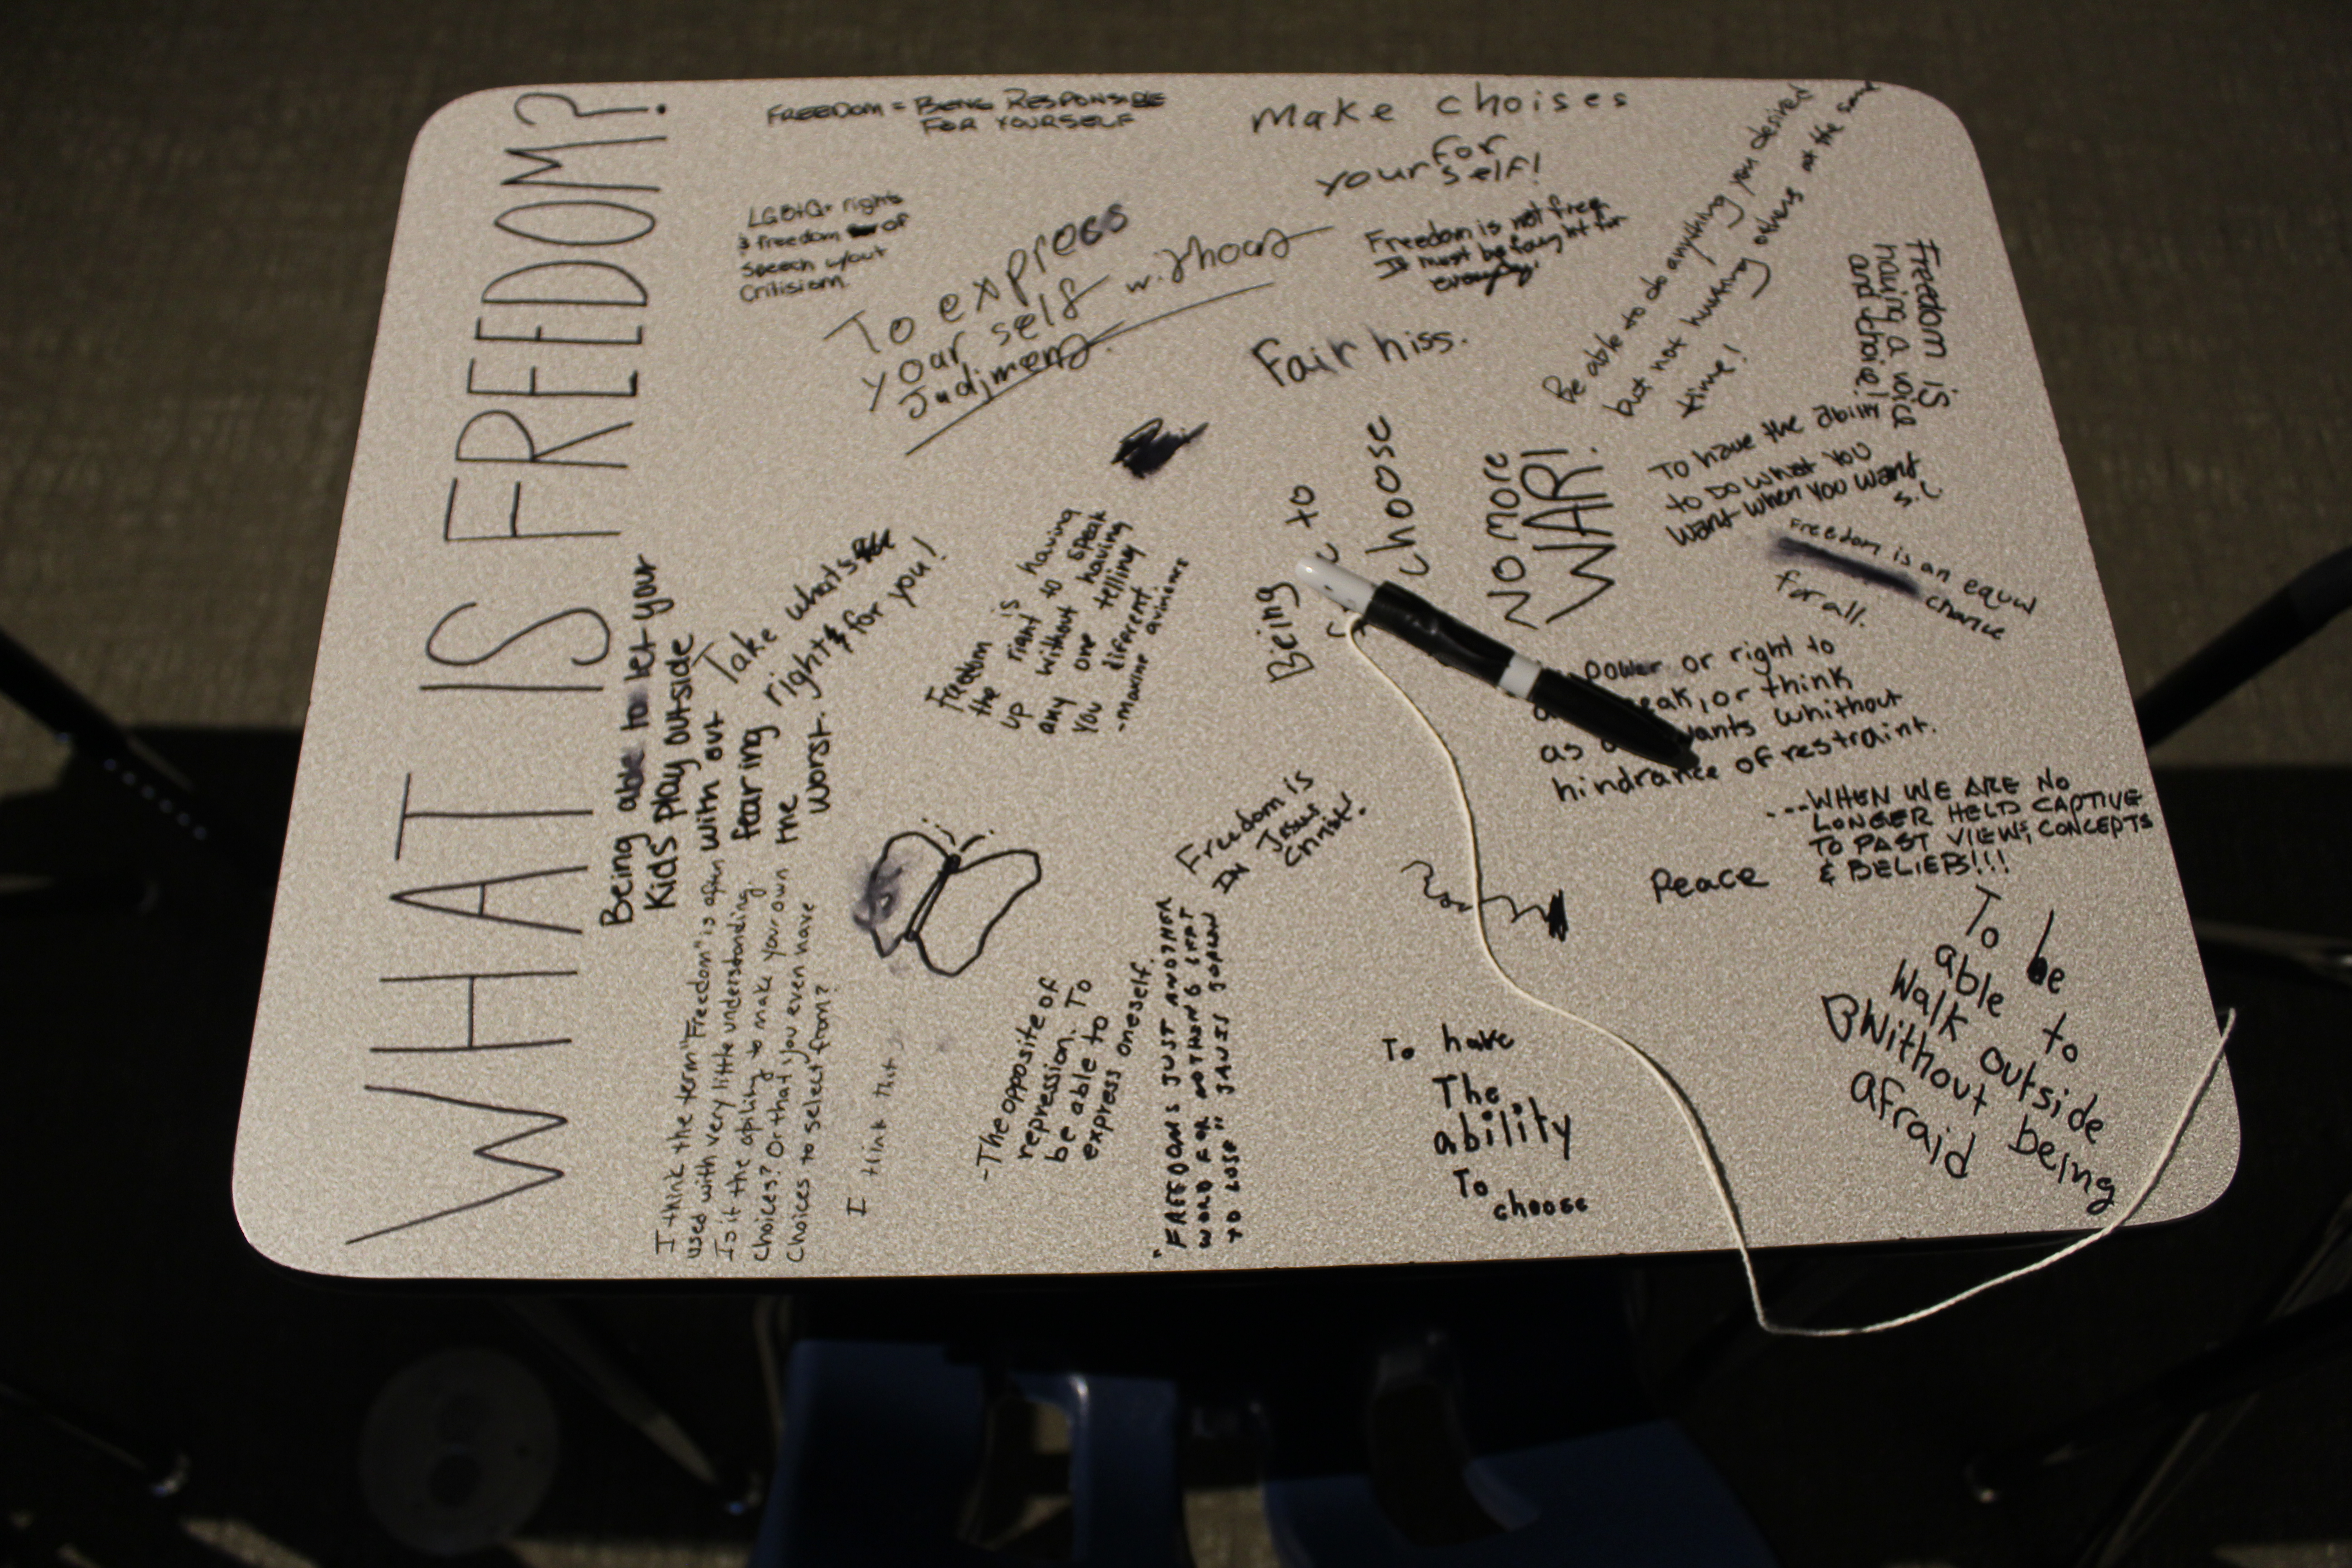 WHAT IS FREEDOM?
FREEDOM = BEING RESPONSIBLE
FOR YOURSELF
Make choises
for
your self!
LGBTQ+ rights
& freedom of
speech w/out
Critisism.
To express
your self without
Judjment.
Freedom is not free
It must be fought for
everyday.
Fair niss.
Be able to do anything you desired
but not hurting others at the same
time!
Freedom is
having a voice
and choice!
To have the ability
to do what you
want when you want
S.C
Freedom is an equal
chance
for all.
NO more
WAR!
Being to
choose
Take whats
right for you!
Being able to let your
Kids play outside
with out
fearing
the
worst.
Freedom is having
the right to speak
up without having
any one telling
you different.
power or right to
speak, or think
as wants whithout
hindrance of restraint.
...WHEN WE ARE NO
LONGER HELD CAPTIVE
TO PAST VIEWS, CONCEPTS
& BELIEFS!!!
Peace
Freedom is
IN Jesus
Christ.
I think the term "Freedom" is often
used with very little understanding.
Is it the ability to make your own
choices? Or that you even have
choices to select from?
I think that
-The opposite of
repression. To
be able to
express oneself.
"FREEDOMS JUST ANOTHER
WORD FOR NOTHING LEFT
TO LOSE" JANIS JOPLIN
To have
The
ability
To
choose
To be
able to
walk outside
without being
afraid